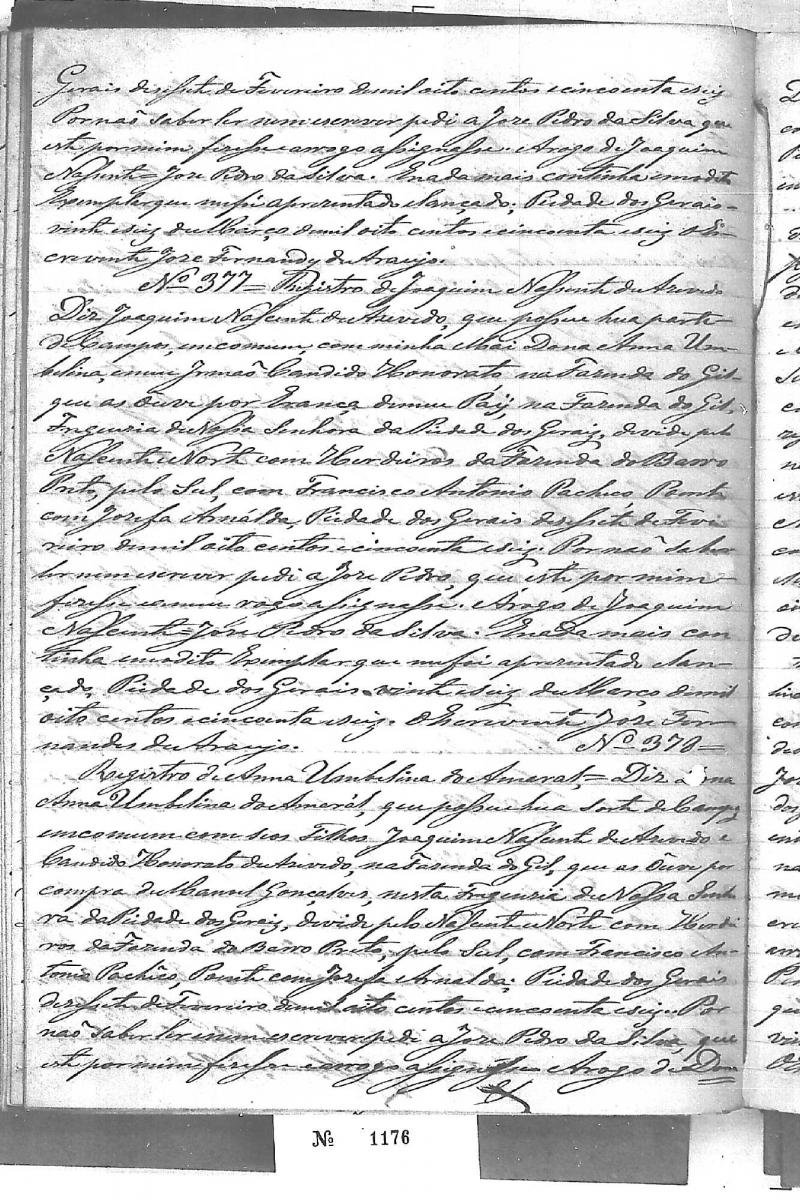 Gerais desesete de Fevereiro demil oito centos ecincoenta eseiz
Por naõ saber ler nem escrever pedi a Joze Pedro da Silva que
este por mim fizesse earogo assignasse. Arogo de Joaquim
Nassente= Joze Pedro da Silva. Enada mais continha emodito
Exemplar que mefoi aprezentado elançado; Piedade dos Gerais
vinte eseiz de Março demil oito centos ecincoenta eseiz o Es-
crevente Joze Fernandes de Araujo.
Nº 377= Registro de Joaquim Nassente de Azevedo
Diz Joaquim Nascente de Azevedo, que possue hua parte
de Campos, emcomum, com minha Mai Dona Anna Um-
belina, emeu Irmaõ Candido Honorato, na Fazenda do Gil-
que as Ouve por Erança demeu Páy, na Fazenda do Gil,
Freguezia de Nossa Senhora da Piedade dos Geraiz, devide pelo
Nascente eNorte com Herdeiros da Fazenda do Barro
Preto, pelo Sul, com Francisco Antonio Pacheco Poente
com Jozefa Arnálda, Piedade dos Gerais desesete de Feve
reiro demil oito centos ecincoenta eseiz. Por naõ saber
ler nem escrever pedi a Joze Pedro, que este por mim
fizesse eameu rogo assignasse. Arogo de Joaquim
Nascente= Joze Pedro da Silva. Enada mais con
tinha emodito Exemplar que mefoi aprezentado elan-
çado, Piedade dos Gerais vinte eseiz de Março demil
oito centos ecincoenta eseiz. OEscrevente Joze Fer-
nandes de Araujo. Nº 378=
Registro de Anna Umbelina do Amaral,= Diz
Anna Umbelina do Amarál, que possue hua sorte de Campos
emcomum com seos Filhos, Joaquim Nassente de Azevedo e
Candido Honorato de Azevedo, na Fazenda do Gil, que as Ouve por
compra de Manuel Gonçalves, nesta Freguezia de Nossa Senho
ra da Piedade dos Geraiz, devide pelo Nascente eNorte com Herdei
ros da Fazenda do Barro Preto, pelo Sul, com Francisco An-
tonio Pachêco, Poente com Jozefa Arnalda; Piedade dos Gerais
dezesete de Fevereiro demil oito centos ecincoenta eseiz. Por
naõ saber ler enem escrever pedi a Joze Pedro da Silva, que
este por mim fizesse earogo assignasse Arogo de Dona
Nº 1176